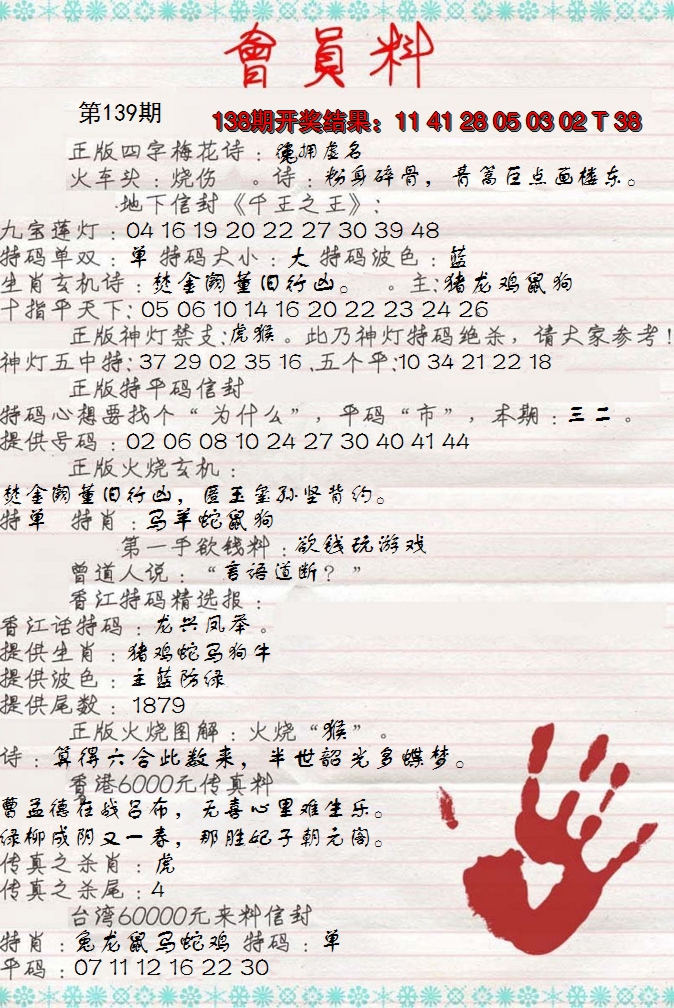 會員料
第139期
138期开奖结果：11 41 28 05 03 02 T 38
正版四字梅花诗：魂拥虚名
火车头：烧伤　。诗：粉身碎骨，青篙臣点画楼东。
地下信封《千王之王》：
九宝莲灯：04 16 19 20 22 27 30 39 48
特码单双：单 特码大小：大 特码波色：蓝
生肖玄机诗：焚金阙董旧行凶。　。主：猪龙鸡鼠狗
十指平天下：05 06 10 14 16 20 22 23 24 26
正版神灯禁支：虎猴。此乃神灯特码绝杀，请大家参考！
神灯五中特：37 29 02 35 16 .五个平：10 34 21 22 18
正版特平码信封
特码心想要找个“为什么”，平码“市”，本期：三二。
提供号码：02 06 08 10 24 27 30 40 41 44
正版火烧玄机：
焚金阙董旧行凶，匿玉玺孙坚背约。
特单　特肖：马羊蛇鼠狗
第一手欲钱料：欲钱玩游戏
曾道人说：“言語道断？”
香江特码精选报：
香江话特码：龙兴凤举。
提供生肖：猪鸡蛇马狗牛
提供波色：主蓝防绿
提供尾数：1879
正版火烧图解：火烧“猴”。
诗：算得六合此数来，半世韶光多蝶梦。
香港6000元传真料
曹孟德在战吕布，无喜心里难生乐。
绿柳成阴又一春，那胜妃子朝元阁。
传真之杀肖：虎
传真之杀尾：4
台湾60000元来料信封
特肖：兔龙鼠马蛇鸡 特码：单
平码：07 11 12 16 22 30